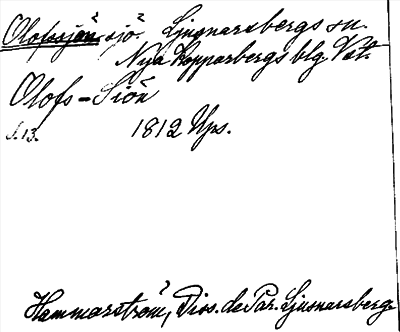 Olofssjön sjö Ljusnarsbergs sn.
Nya Kopparbergs blg. Vstm.
Olofs-Siön
s. 13. 1812 Ups.
Hammarström, Diss. de Par. Ljusnarsberg